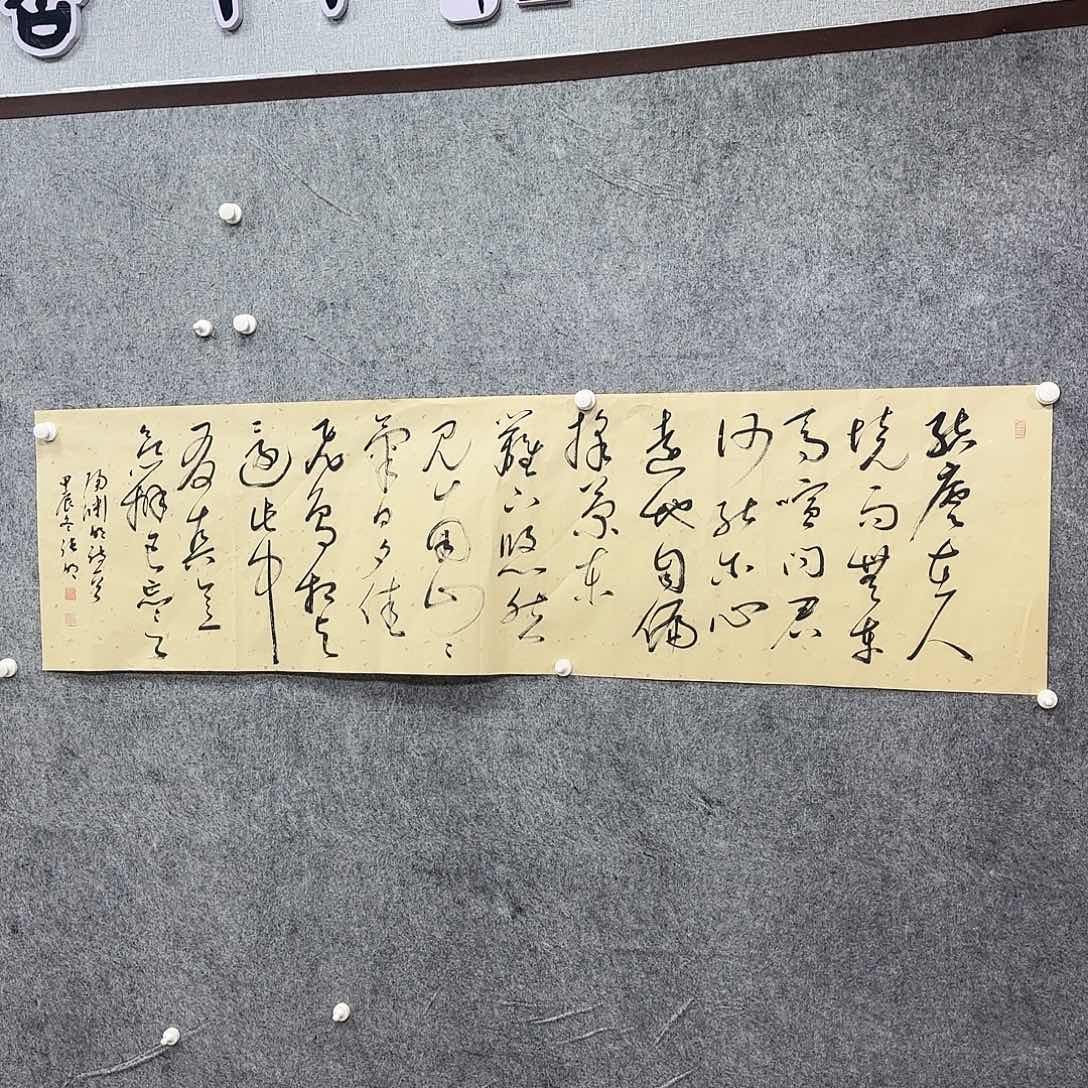 結廬在人
境而無車
馬喧問君
何能尓心
遠地自偏
採菊東
籬下悠然
見南山山
氣日夕佳
飛鳥相與
還此中
有真意
欲辨已忘言
陶淵明詩
甲辰冬